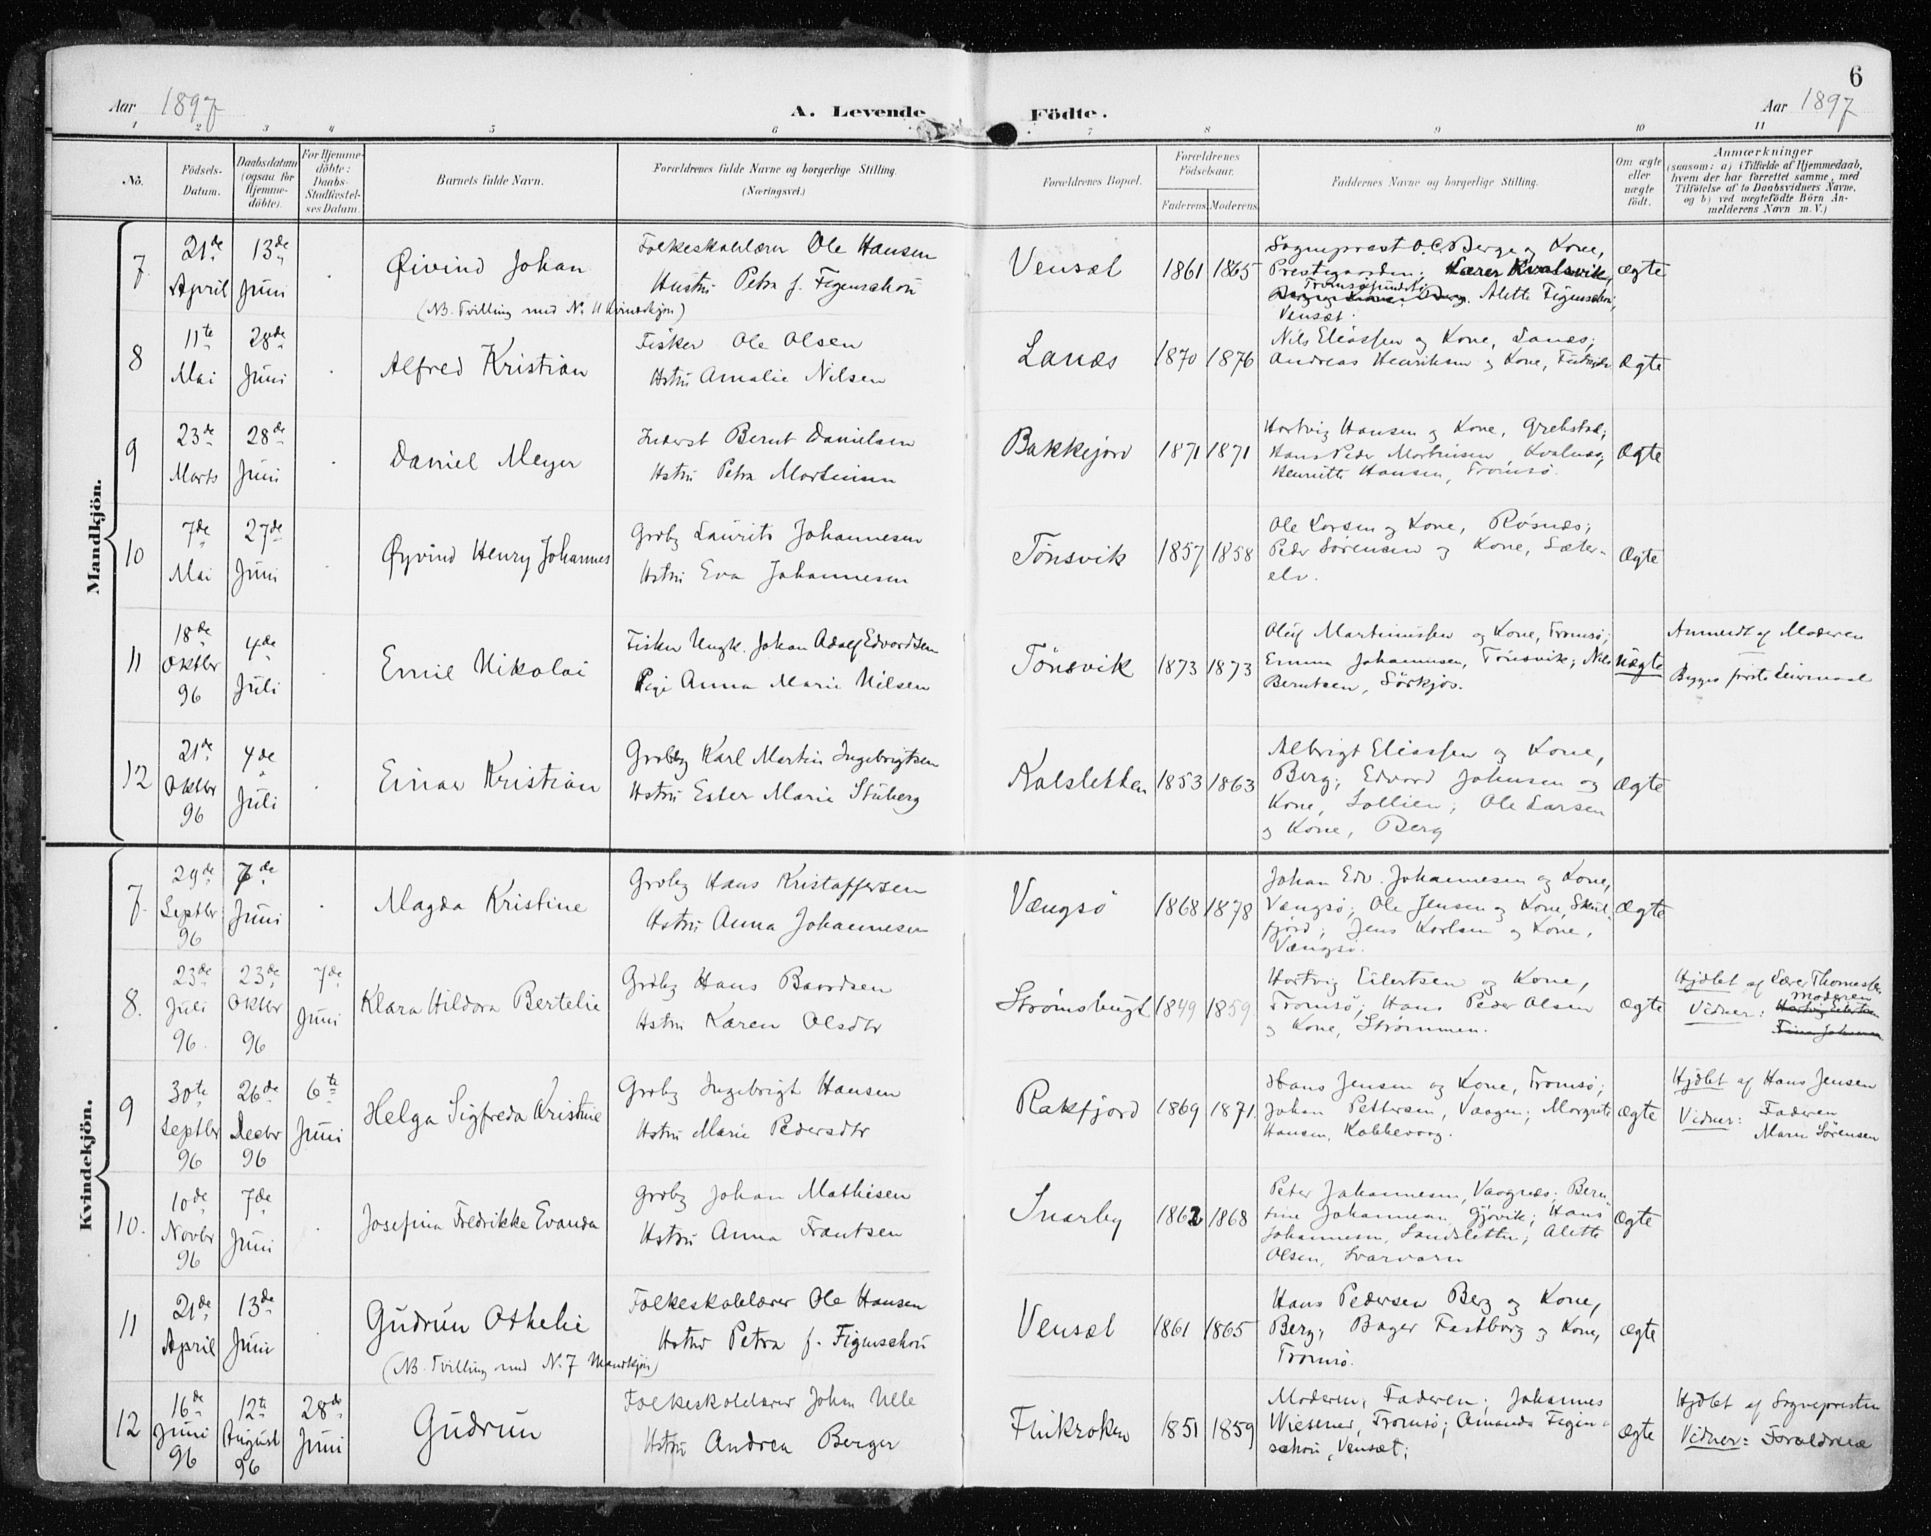 6
Aar 1897
A. Levende Födte.
Aar 1897
1 2 3 4 5 6 7 8 9 10 11
No.
Födsels-
Datum.
Daabsdatum
(ogsaa for
Hjemme-
döbte).
For Hjemme-
döbte:
Daabs-
Stadfæstel-
ses Datum.
Barnets fulde Navn.
Forældrenes fulde Navne og borgerlige Stilling.
(Næringsvei.)
Forældrenes Bopæl.
Forældrenes
Födselsaar.
Faderens. Moderens.
Faddernes Navne og borgerlige Stilling.
Om ægte
eller
uægte
födt.
Anmærkninger
(saasom: a) i Tilfælde af Hjemmedaab,
hvem der har forrettet samme, med
Tilföielse af to Daabsvidners Navne,
og b) ved uægtefödte Börn An-
melderens Navn m. V.)
Mandkjön.
7.
21de
April
13de
Juni
Øivind Johan
(NB. Tvilling med No 11 Kvindekjön)
Folkeskolelærer Ole Hansen
Hustru Petra f. Figenschou
Vensæt
1861
1865
Sogneprest O.C. Berge og Kone,
Prestegaarden; Lærer Kvalsvik,
Tromsøsundet;
Alette Figenschou,
Vensæt.
Ægte
8
11te
Mai
28de
Juni
Alfred Kristian
Fisker Ole Olsen
Hstru Amalie Nilsen
Lanæs
1870
1876
Nils Eliassen og Kone, Lanæs;
Andreas Henriksen og Kone,
Ægte
9
23de
Marts
28de
Juni
Daniel Meyer
Inderst Bernt Danielsen
Hstru Petra Martinsen
Bakkejord
1871
1871
Hartvig Hansen og Kone, Grebstad;
Hans Peder Martinsen, Kvalnæs,
Henriette Hansen, Tromsø.
Ægte
10
7de
Mai
27de
Juni
Øyvind Henry Johannes
Grdbg Laurits Johannesen
Hstru Eva Johannesen
Tønsvik
1857
1858
Ole Larsen og Kone, Røsnæs;
Peder Sørensen og Kone, Sæter-
elv.
Ægte
11
18de
Oktbr
96
4de
Juli
Emil Nikolai
Fisker Ungk. Johan Adolf Edvardsen
Pige Anna Marie Nilsen
Tønsvik
1873
1873
Oluf Martinussen og Kone, Tromsø;
Emma Johannesen, Tønsvik; Nils
Berntsen, Sörkjos.
Uægte
Anmeldt af Moderen
Begges förste Leiermaal
12
21de
Oktbr
96
4de
Juli
Einar Kristian
Grdbg Karl Martin Ingebrigtsen
Hstru Ester Marie Stuberg
Kalsletten
1853
1863
Albrigt Eliassen og Kone,
Berg; Edvard Johnsen og
Kone, Sollien; Ole Larsen
og Kone, Berg
Ægte
Kvindekjön.
7.
29de
Septbr
96
7de
Juni
Magda Kristine
Grdbg Hans Kristoffersen
Hstru Anna Johannesen
Vængsö
1868
1878
Johan Edv. Johannesen og Kone,
Vængsø; Ole Jensen og Kone, Skul-
fjord; Jens Karlsen og Kone,
Vængsø.
Ægte
8.
23de
Juli
96.
23de
Oktbr
96
7de
Juni
Klara Hildora Bertelie
Grdbg Hans Baardsen
Hstru Karen Olsdtr
Strömsbugt
1849
1859
Hartvig Eilertsen og Kone,
Tromsø; Hans Peder Olsen
og Kone, Strømmen.
Ægte
Hjdbt af Lærer Thomassen
Vidner: Moderen
Hartvig Eilertsen
Tina Johansen
9
30te
Septbr
96
26de
Decbr
96
6te
Juni
Helga Sigfreda Kristine
Grdbg Ingebrigt Hansen
Hstru Marie Pedersdtr
Rakfjord
1869
1871.
Hans Jensen og Kone, Tromsø;
Johan Pettersen, Vaagen; Margrete
Hansen, Kobbevaag.
Ægte
Hjdbt af Hans Jensen
Vidner: Faderen
Maren Sörensen
10.
10de
Novbr
96
7de
Juni
Josefina Fredrikke Evanda
Grdbg Johan Mathisen
Hstru Anna Frantsen
Snarby
1862
1868
Peter Johannesen, Vaagnæs; Bern-
tine Johannesen, Gjövik; Hans
Johannesen, Sandsletten; Alette
Olsen, Svarvarn
Ægte
11
21de
April
13de
Juni
Gudrun Othelie
(NB. Tvilling med No. 7 Mandkjön)
Folkeskolelærer Ole Hansen
Hstru Petra f. Figenschou
Vensæt
1861
1865
Hans Pedersen Berg og Kone,
Berg; Bager Fastborg og Kone,
Tromsø.
Ægte
12
16de
Juni
96
12te
August
96
28de
Juni
Gudrun
Folkeskolelærer Johan Ulle
Hstru Andrea Berger
Finkroken
1851
1859
Moderen; Faderen; Johannes
Wiesener, Tromsø; Amanda Figen-
schou, Vensæt;
Ægte
Hjdbt af Sognepresten
Vidner: Forældrene